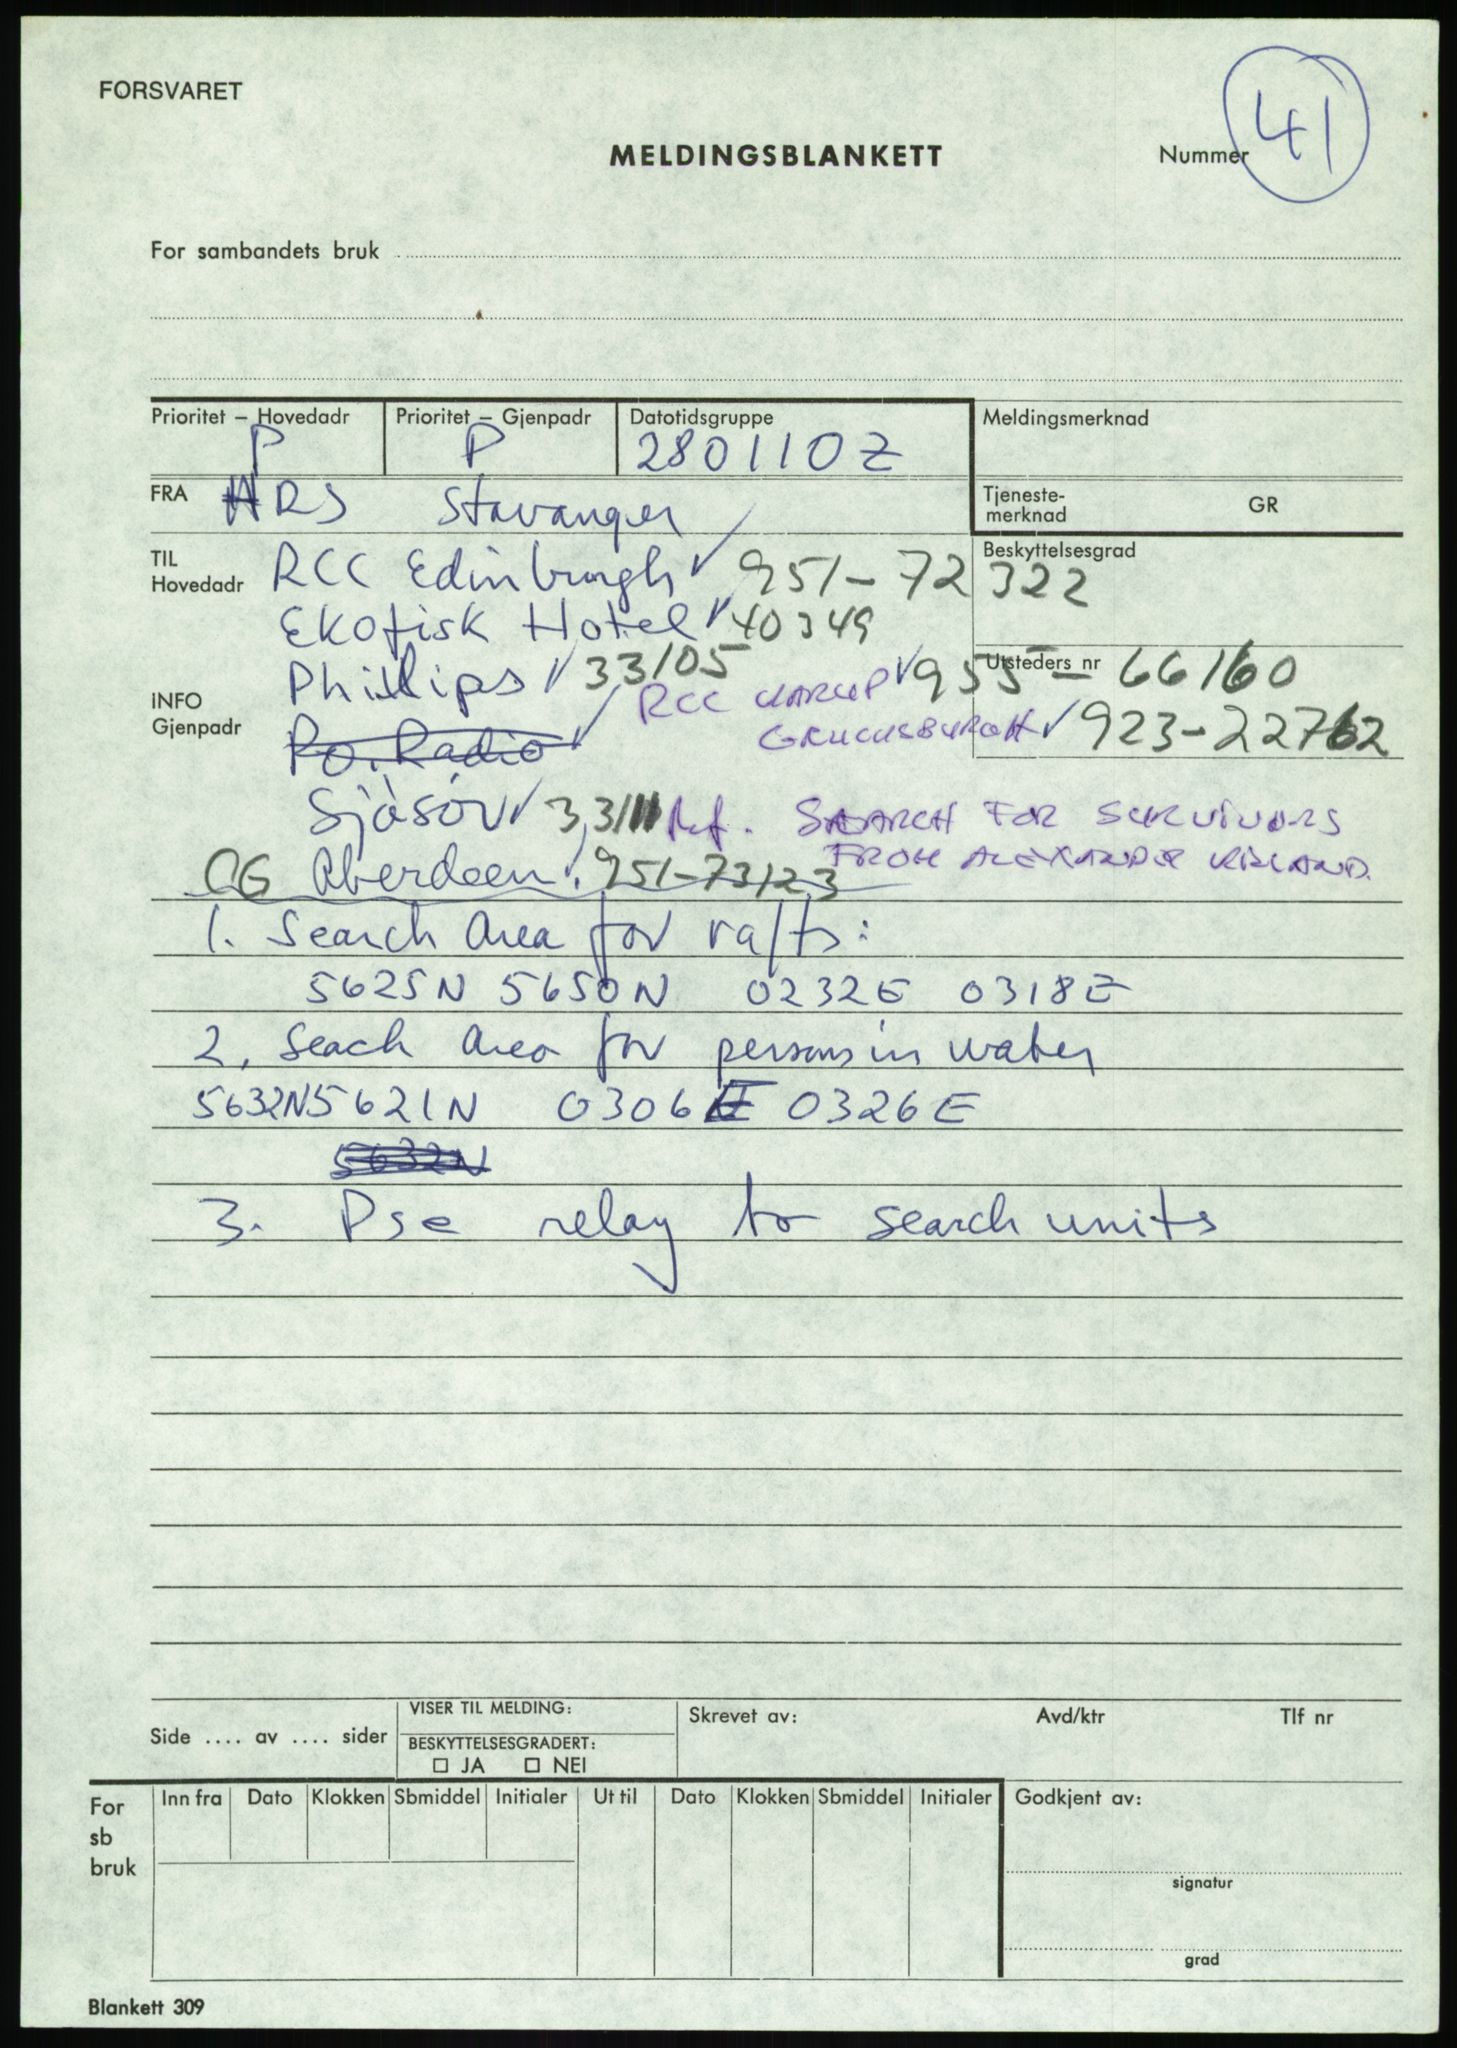 FORSVARET
MELDINGSBLANKETT
Nummer 41
For sambandets bruk
Prioritet – Hovedadr P
Prioritet – Gjenpadr P
Datotidsgruppe 280110Z
Meldingsmerknad
FRA HRS Stavanger
Tjeneste-
merknad
GR
TIL
Hovedadr
Beskyttelsesgrad
RCC Edinburgh ✓ 951-72322
Ekofisk Hotel ✓ 40349
Phillips ✓ 33105
Utsteders nr
INFO
Gjenpadr
RCC KARUP ✓ 955-66160
Ro. Radio ✓
✓ 923-22762
Sjøsov ✓
Ref. SEARCH FOR SURVIVORS
FROM ALEXANDER KIELAND.
CG Aberdeen. 951-73123
1. Search Area for rafts:
5625N 5650N 0232E 0318E
2. Seach Area for persons in water
5632N 5621N 0306E 0326E
5632N
3. Pse relay to search units
Side .... av .... sider
VISER TIL MELDING:
BESKYTTELSESGRADERT:
☐ JA ☐ NEI
Skrevet av:
Avd/ktr
Tlf nr
For
sb
bruk
Inn fra Dato Klokken Sbmiddel Initialer Ut til Dato Klokken Sbmiddel Initialer
Godkjent av:
signatur
grad
Blankett 309